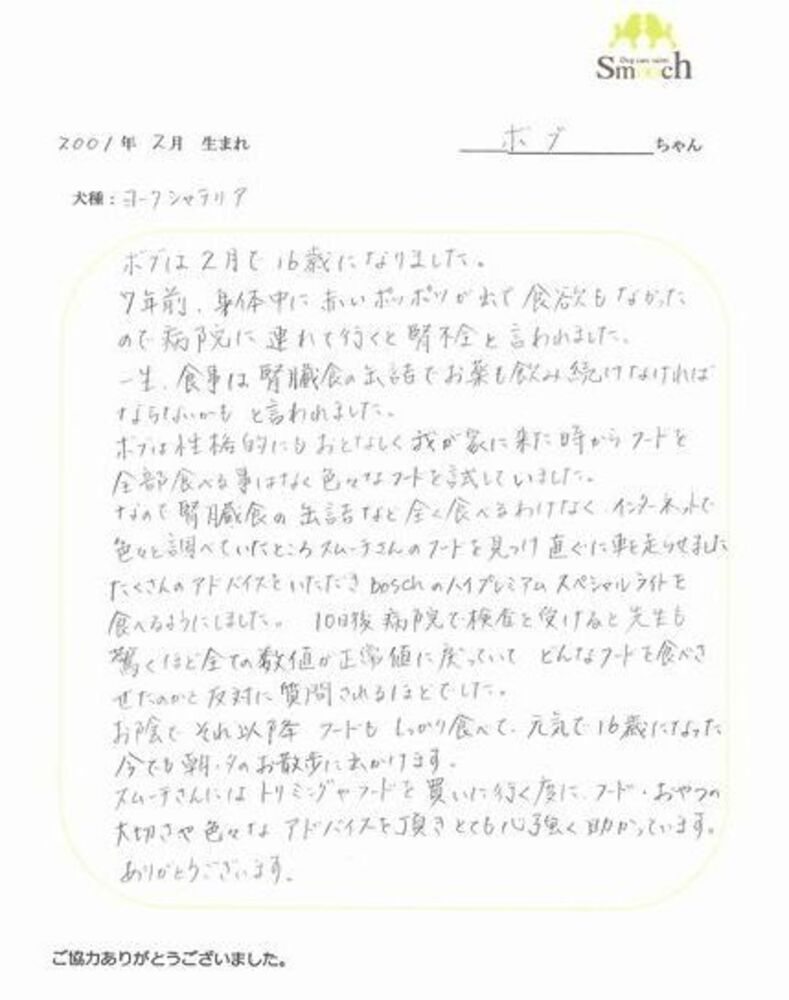 Dog care salon
Smooch
2001年 2月 生まれ
ボブ ちゃん
犬種:ヨークシャテリア
ボブは2月で16歳になりました。
7年前、身体中に赤いポツポツが出て食欲もなかった
ので病院に連れて行くと腎不全と言われました。
一生、食事は腎臓食の缶詰でお薬も飲み続けなければ
ならないかもと言われました。
ボブは性格的にもおとなしく我が家に来た時からフードを
全部食べる事はなく色々なフードを試していました。
なので腎臓食の缶詰など全く食べるわけなく、インターネットで
色々と調べていたところスムーチさんのフードを見つけ直ぐに車を走らせました
たくさんのアドバイスをいただきboschのハイプレミアムスペシャルライトを
食べるようにしました。 10日後病院で検査を受けると先生も
驚くほど全ての数値が正常値に戻っていて どんなフードを食べさ
せたのかと反対に質問されるほどでした。
お陰で それ以降 フードもしっかり食べて、元気で16歳になった
今でも朝・夕のお散歩に出かけます。
スムーチさんにはトリミングやフードを買いに行く度に、フード・おやつの
大切さや色々なアドバイスを頂きとても心強く助かっています。
ありがとうございます。
ご協力ありがとうございました。